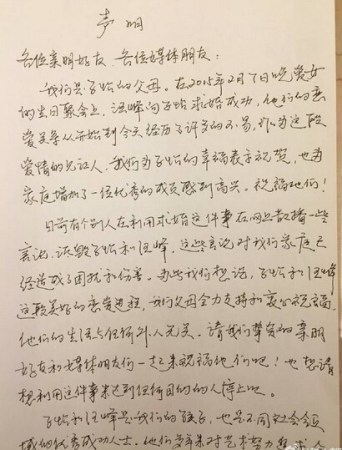 声明
各位亲朋好友、各位媒体朋友:
我们是子怡的父母。在2015年2月7日晚爱女
的生日聚会上,汪峰向子怡求婚成功,他们的恋
爱关系从开始到今天经历了许多的不易,作为这段
爱情的见证人,我们为子怡的幸福表示祝贺,也为
家庭增加了一位优秀的成员感到高兴。祝福他们!
目前有个别人在利用求婚这件事在网上散播一些
言论,诋毁子怡和汪峰,这些言论对我们家庭已
经造成了困扰和伤害。为此我们想说,子怡和汪峰
这段美好的恋爱过程,我们父母全力支持和衷心祝福
他们的生活与任何外人无关。请我们挚爱的亲朋
好友和媒体朋友们一起来祝福他们吧!也想请
想利用这件事来达到任何目的的人停止吧。
子怡和汪峰是我们的孩子,也是不同社会领
域的优秀成功人士。他们多年来对艺术努力追求